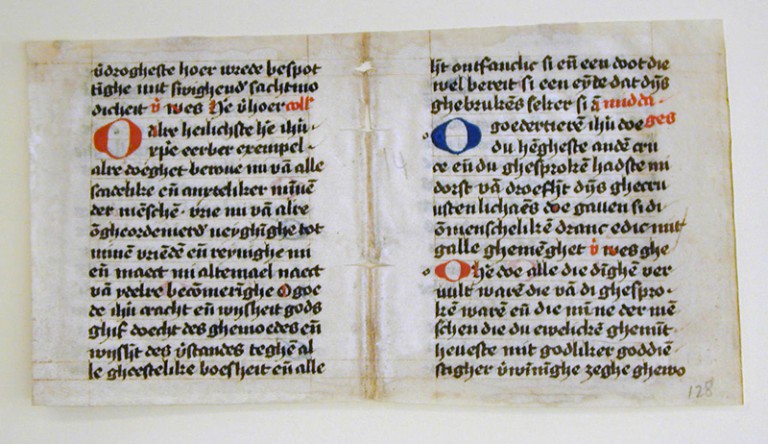 v̄drogheste hoer wrede bespot
tīghe mit swighend' sachtmo
dicheit v̄ wes h̄e v̄hoer coll'
O alre heilichste h̄e ih̄u
xp̄e eerber exempel
alre doeghet beroue nu vā alle
scadelike en̄ onrteliker mīnē
der mēschē vrie nu vā alre
ōgheordenierd' neyghīghe tot
mīnē vriēdē en̄ reynighe mi
en̄ maect mi altemael naect
vā ydelre becōmerīghe O goe
de ih̄u cracht en̄ wijsheit gods
ghif doecht des ghemoedes en̄
wijsh't des v̄standes teghē al
le gheestelike boesheit en̄ alle
h't ontfanckē si en̄ een doot die
wel bereit si een eynde dat dijs
ghebrukēs seker si ā mid da
ges
O goedertierē ih̄u doe
du hēgheste andē cru
ce en̄ du ghesprokē hadste mi
dorst vā droefh't dijs ghecru
usten lichaēs doe gauen si di
ōmenschelikē dranc edic mit
galle ghemēghet v̄ wes ghe
O h̄e doe alle die dīghē ver
uult warē die vā di ghespro
kē warē en̄ die mīne der mē
schen die du ewelickē ghemīt
heueste mit godliker goddiē
stigher v̄wīnīghe zeghe ghewo
128